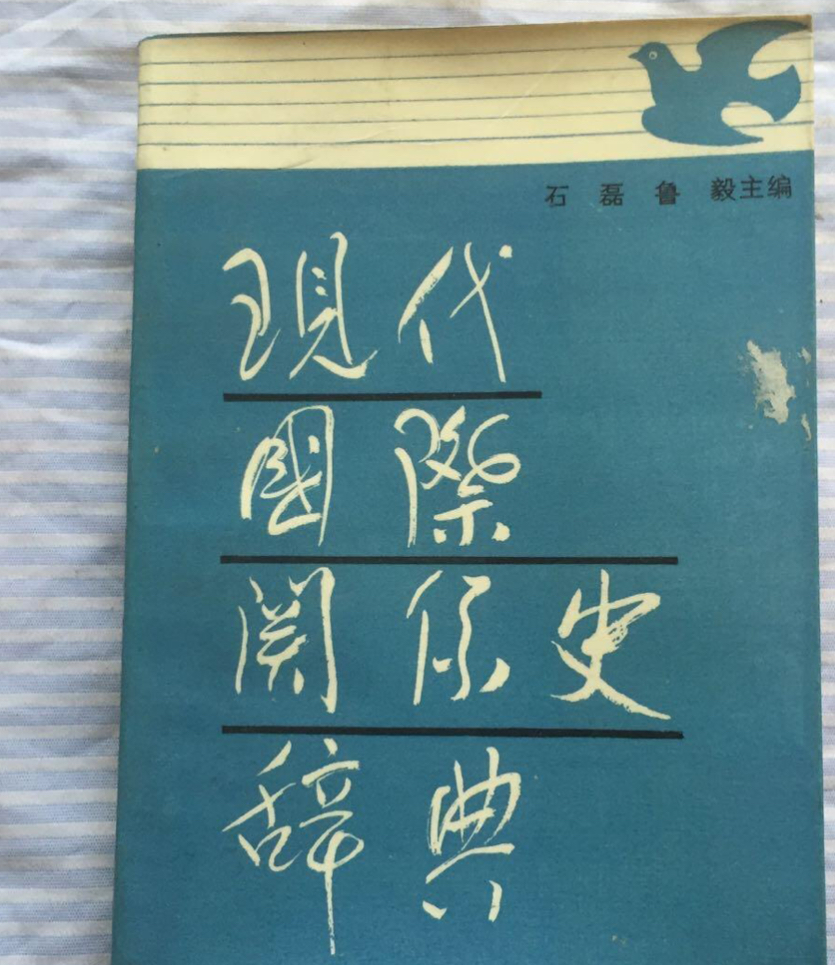 石磊鲁毅主编
現代
國際
関係史
辞典